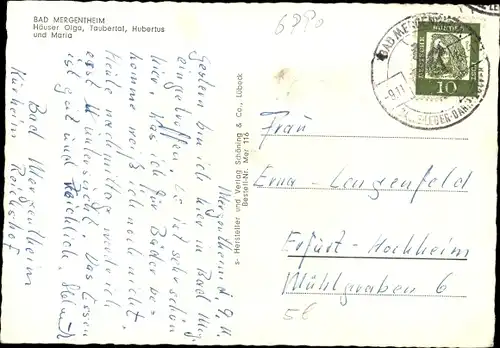 BAD MERGENTHEIM
Häuser Olga, Taubertal, Hubertus
und Maria
Mergentheim d. 9.11.
Gestern bin ich hier in Bad Mg.
eingetroffen. Es ist sehr schön
hier. Was ich für Bäder be-
komme weiß ich noch nicht.
Heute nachmittag werde ich
erst untersucht. Das Essen
ist gut und reichlich.
Bad Mergentheim
Kurheim Reichshof
s- Hersteller und Verlag Schöning & Co., Lübeck
Bestell-Nr. Mer 116
BAD MERGENTHEIM
-9.11.
DEUTSCHE BUNDESPOST
10
Frau
Erna Langenfeld
Erfurt-Hochheim
Mühlgraben 6
5€